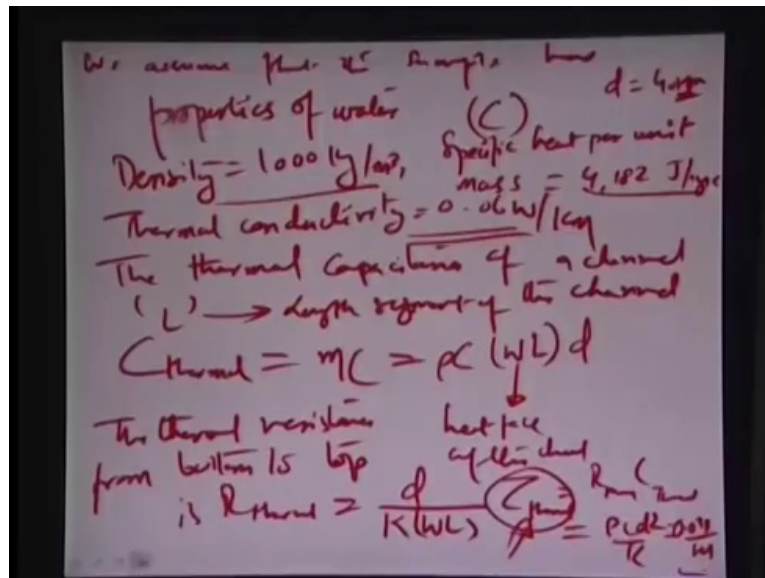 We assume that the sample has
properties of water (C) d = 4
Density = 1000 kg/m³, Specific heat per unit
mass = 4,182 J/kgK
Thermal conductivity = 0.06 W/Km
The thermal Capacitance of a channel
'L' → length segment of the channel
C thermal = mC = ρC (WL) d
The thermal resistance heat face
from bottom to top of the
is R thermal = d / K(WL) τ = R C
= ρCd² / K